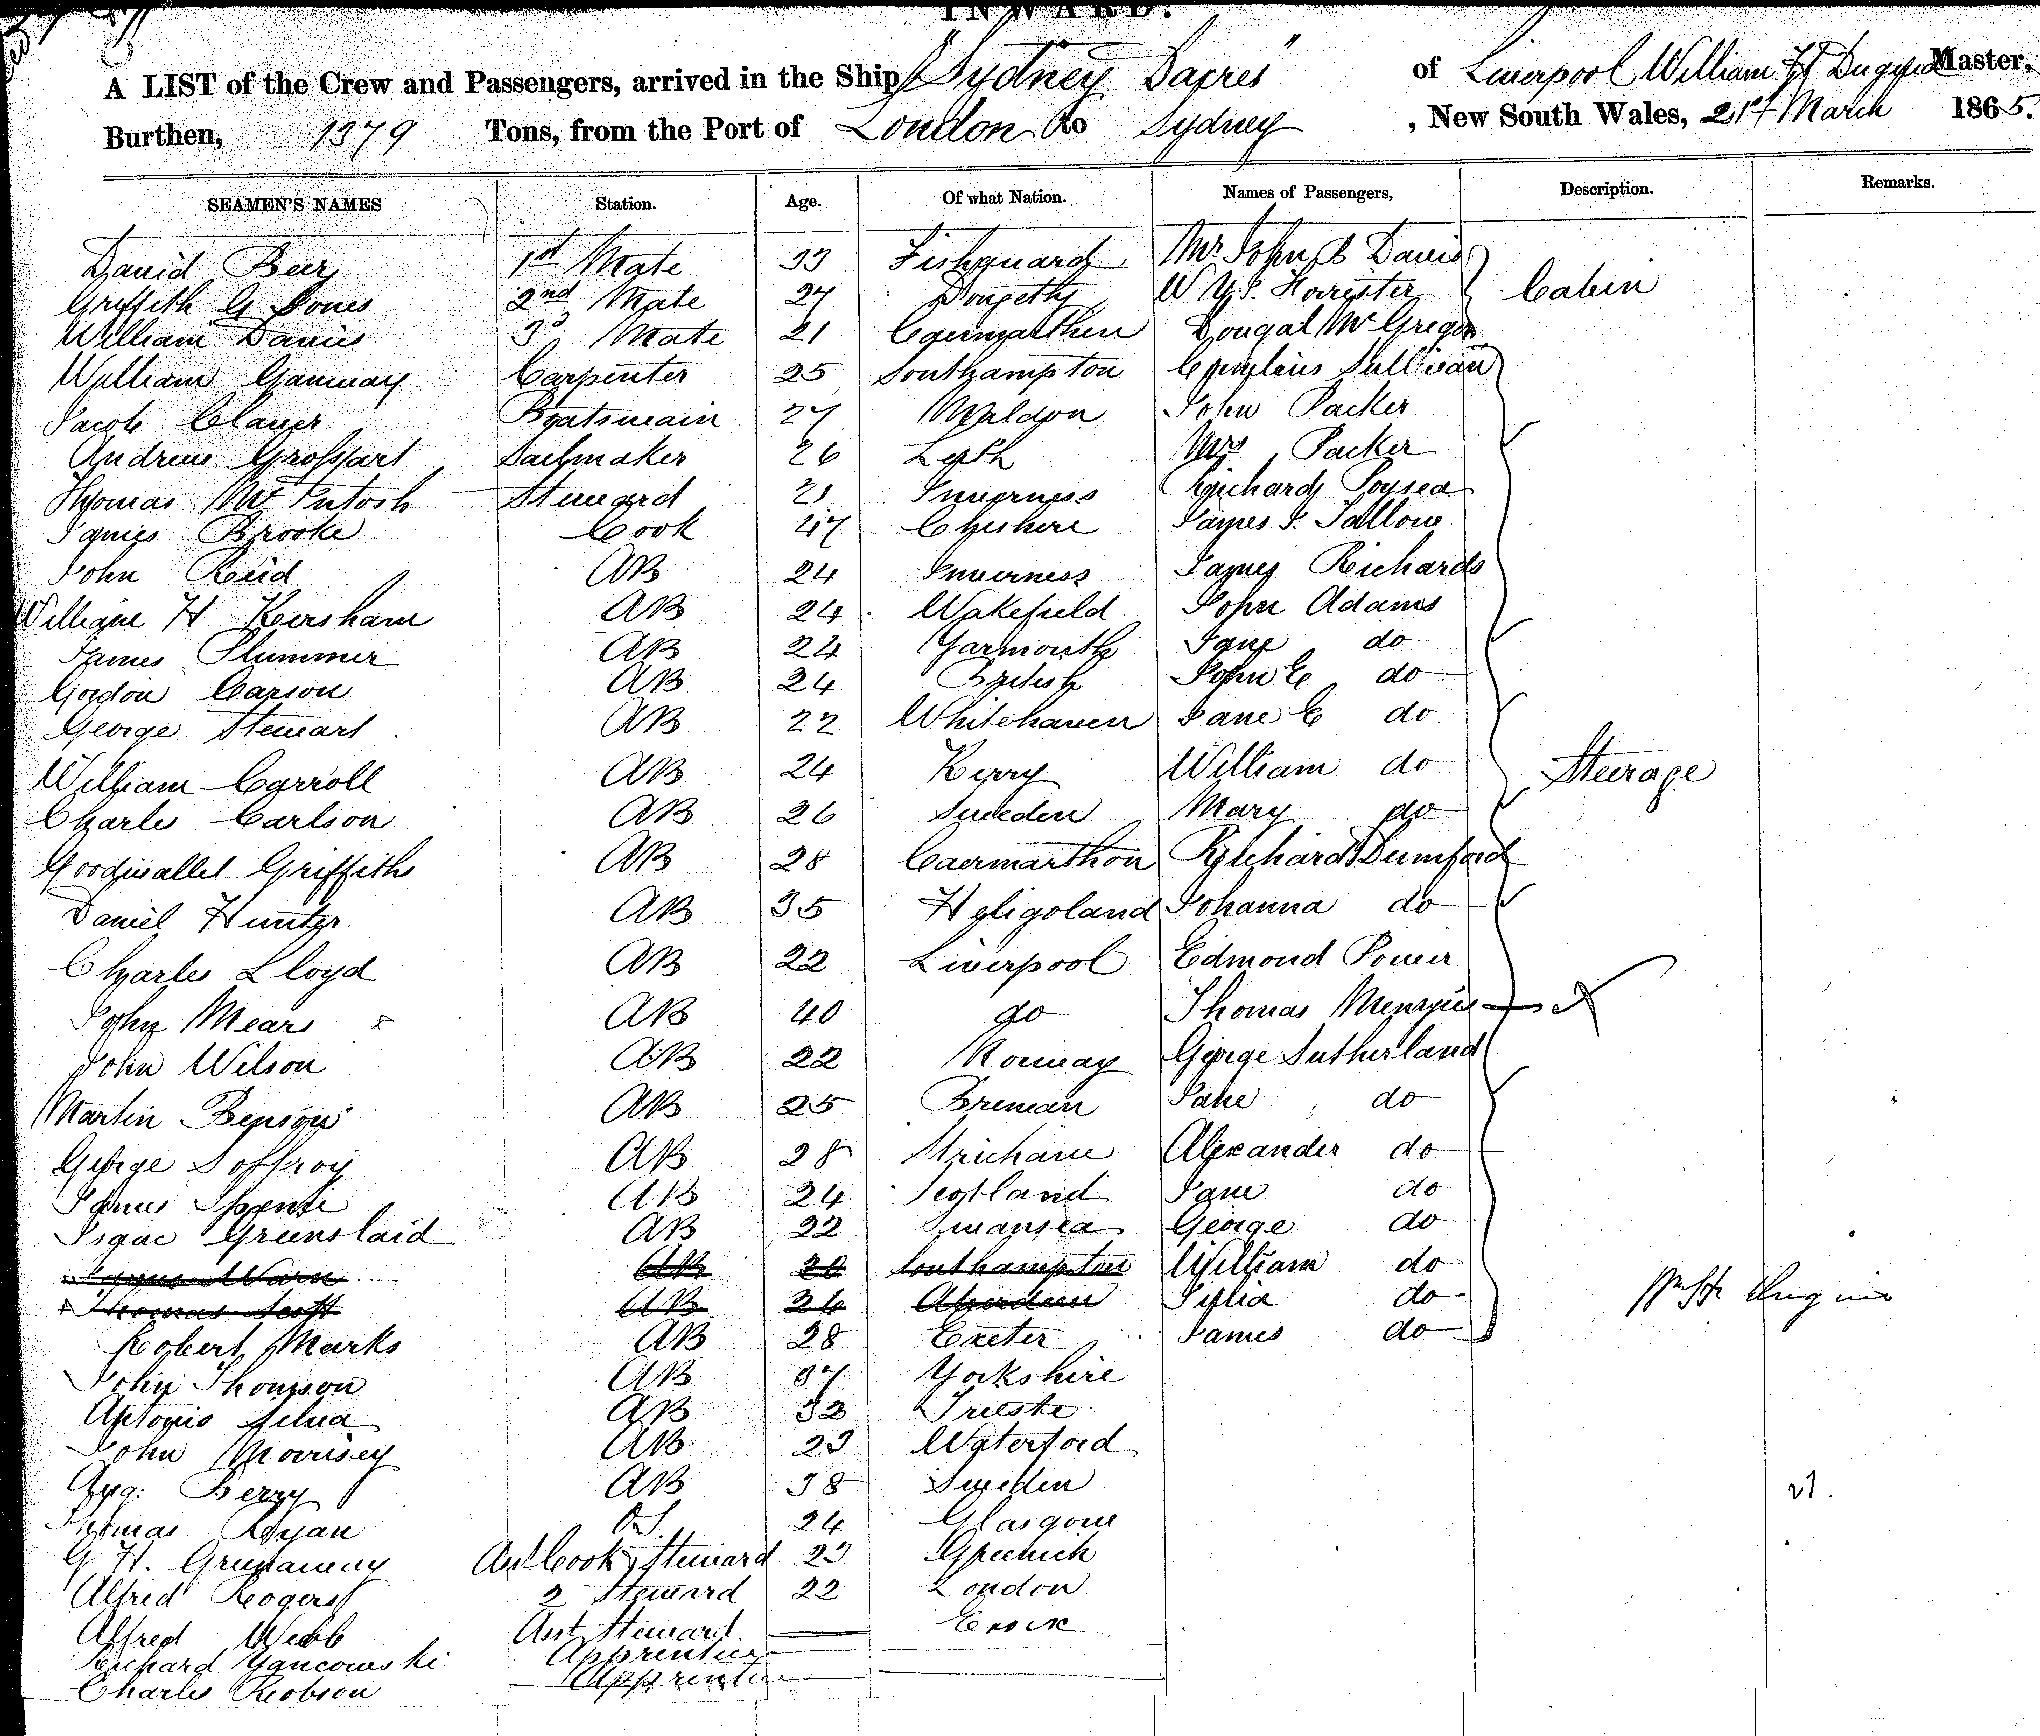 INWARD.
A LIST of the Crew and Passengers, arrived in the Ship "Sydney Dacres" of Liverpool William Master,
Burthen, 1379 Tons, from the Port of London to Sydney , New South Wales, 21st March 1865.
SEAMEN'S NAMES Station. Age. Of what Nation. Names of Passengers, Description. Remarks.
David Beer 1st Mate 33 Fishguard Mr John B Davis
Griffith G Jones 2nd Mate 27 W Cabin
William Davies 3d Mate 21 Caermarthen Dougal McGregor
William Carpenter 25 Southampton Cornelius Sullivan
Jacob Boatswain 27 Maldon John Packer
Andrew Grossart Sailmaker 26 Leith Mrs Packer
Thomas McIntosh Steward 21 Inverness Richard
James Brooke Cook 47 Cheshire James
John Reid AB 24 Inverness James Richards
William H Kersham AB 24 Wakefield John Adams
James Plummer AB 24 Yarmouth Jane do
Gordon Carson AB 24 British John E do
George Stewart AB 22 Whitehaven Jane E do
William Carroll AB 24 Kerry William do Steerage
Charles Carlson AB 26 Sweden Mary do
Griffiths AB 28 Caermarthon Richard Dumford
Daniel Hunter AB 35 Heligoland Johanna do
Charles Lloyd AB 22 Liverpool Edmond Power
John Mears x AB 40 do Thomas Menzies
John Wilson AB 22 Norway George Sutherland
Martin AB 25 Breman Jane do
George AB 28 Alexander do
James AB 24 Scotland Jane do
Isaac Grunslaid AB 22 Swansea George do
Warn AB Southampton William do
Thomas Scott AB 26 Aberdeen do
Robert Marks AB 28 Exeter James do
John Thomson AB 37 Yorkshire
Antonio Silva AB 32 Trieste
John Morrisey AB 23 Waterford
Aug. Berry AB 38 Sweden
Thomas Ryan OS. 24 Glasgow
G H. Cook & Steward 23
Alfred Rogers 2 Steward 22 London
Alfred Webb Ast Steward
Richard Yancowski Apprentice
Charles Robson Apprentice